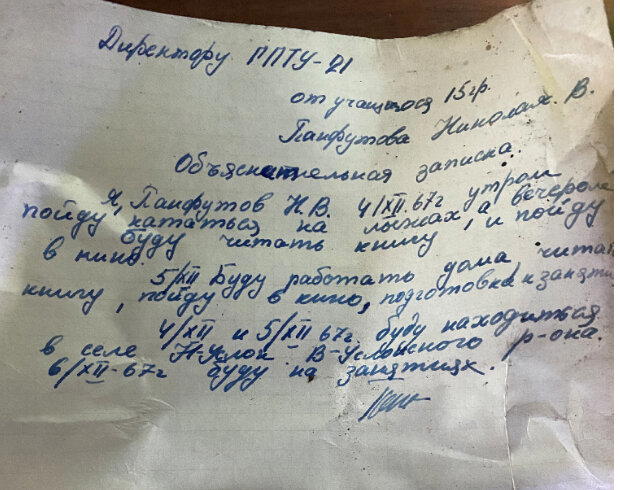 Директору ГПТУ-21
от учащегося 15гр.
Панфутова Николая. В.
Объяснительная записка.
Я, Панфутов Н.В. 4/XII.67г утром
пойду кататься на лыжах а вечером
буду читать книгу, и пойду
в кино.
5/XII Буду работать дома, читать
книгу, пойду в кино, подготовка к занятию
4/XII и 5/XII 67г буду находиться
в селе Н-Услон В-Услонского р-она.
6/XII-67г буду на занятиях.